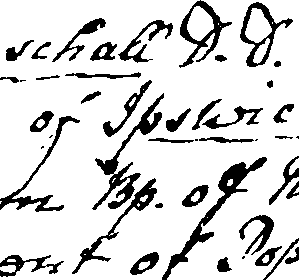 schall D.D.
of Ipswic
Bp. of
of Pop